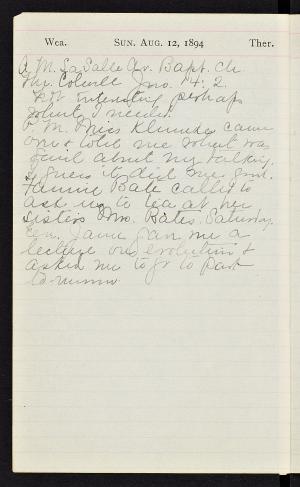 Wea. SUN. AUG. 12, 1894 Ther.
A.M. La Salle Av. Bapt. Ch
Mr. Jno. 14:2.
Not interesting perhaps
what I need.
P.M. Miss came
over & told me what was
said about my talking.
I guess it did me good.
Fannie Bate called to
ask us to tea at her
sisters Mrs. Bates. Saturday
Eve. Jamie gave me a
lecture on evolution &
asked me to go to Park